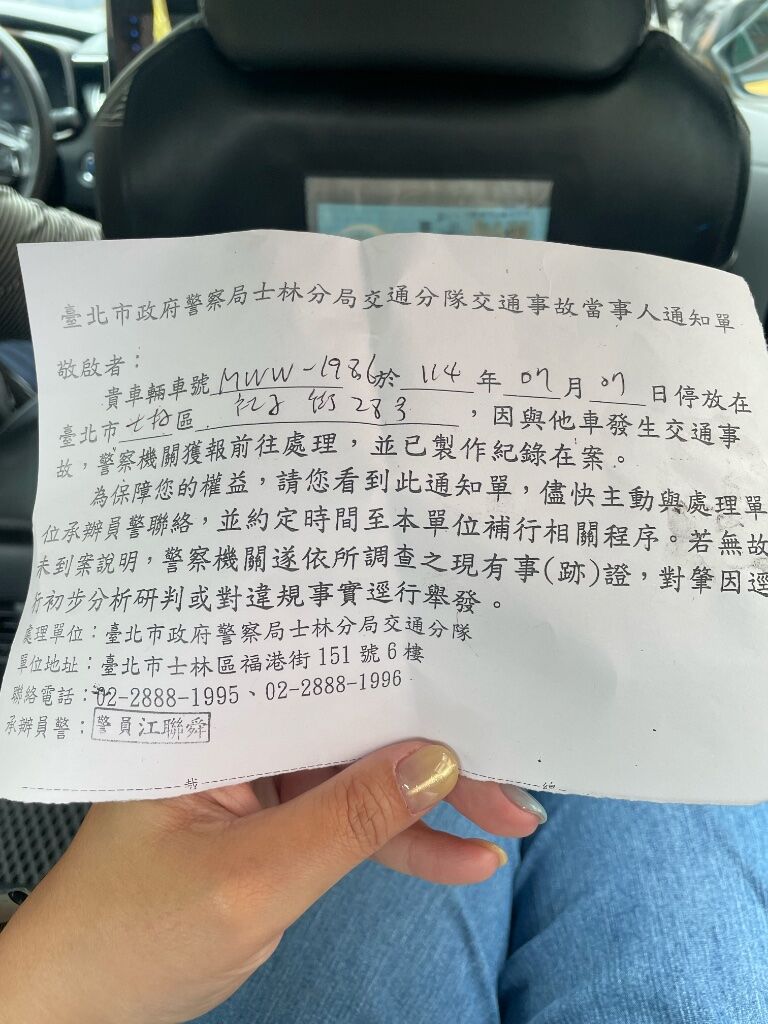 臺北市政府警察局士林分局交通分隊交通事故當事人通知單
敬啟者：
貴車輛車號 MWW-1986 於 114 年 07 月 07 日停放在
臺北市士林區 街 283 ，因與他車發生交通事
故，警察機關獲報前往處理，並已製作紀錄在案。
為保障您的權益，請您看到此通知單，儘快主動與處理單
位承辦員警聯絡，並約定時間至本單位補行相關程序。若無故
未到案說明，警察機關遂依所調查之現有事(跡)證，對肇因逕
行初步分析研判或對違規事實逕行舉發。
處理單位：臺北市政府警察局士林分局交通分隊
單位地址：臺北市士林區福港街 151 號 6 樓
聯絡電話：02-2888-1995、02-2888-1996
承辦員警：警員江聯舜